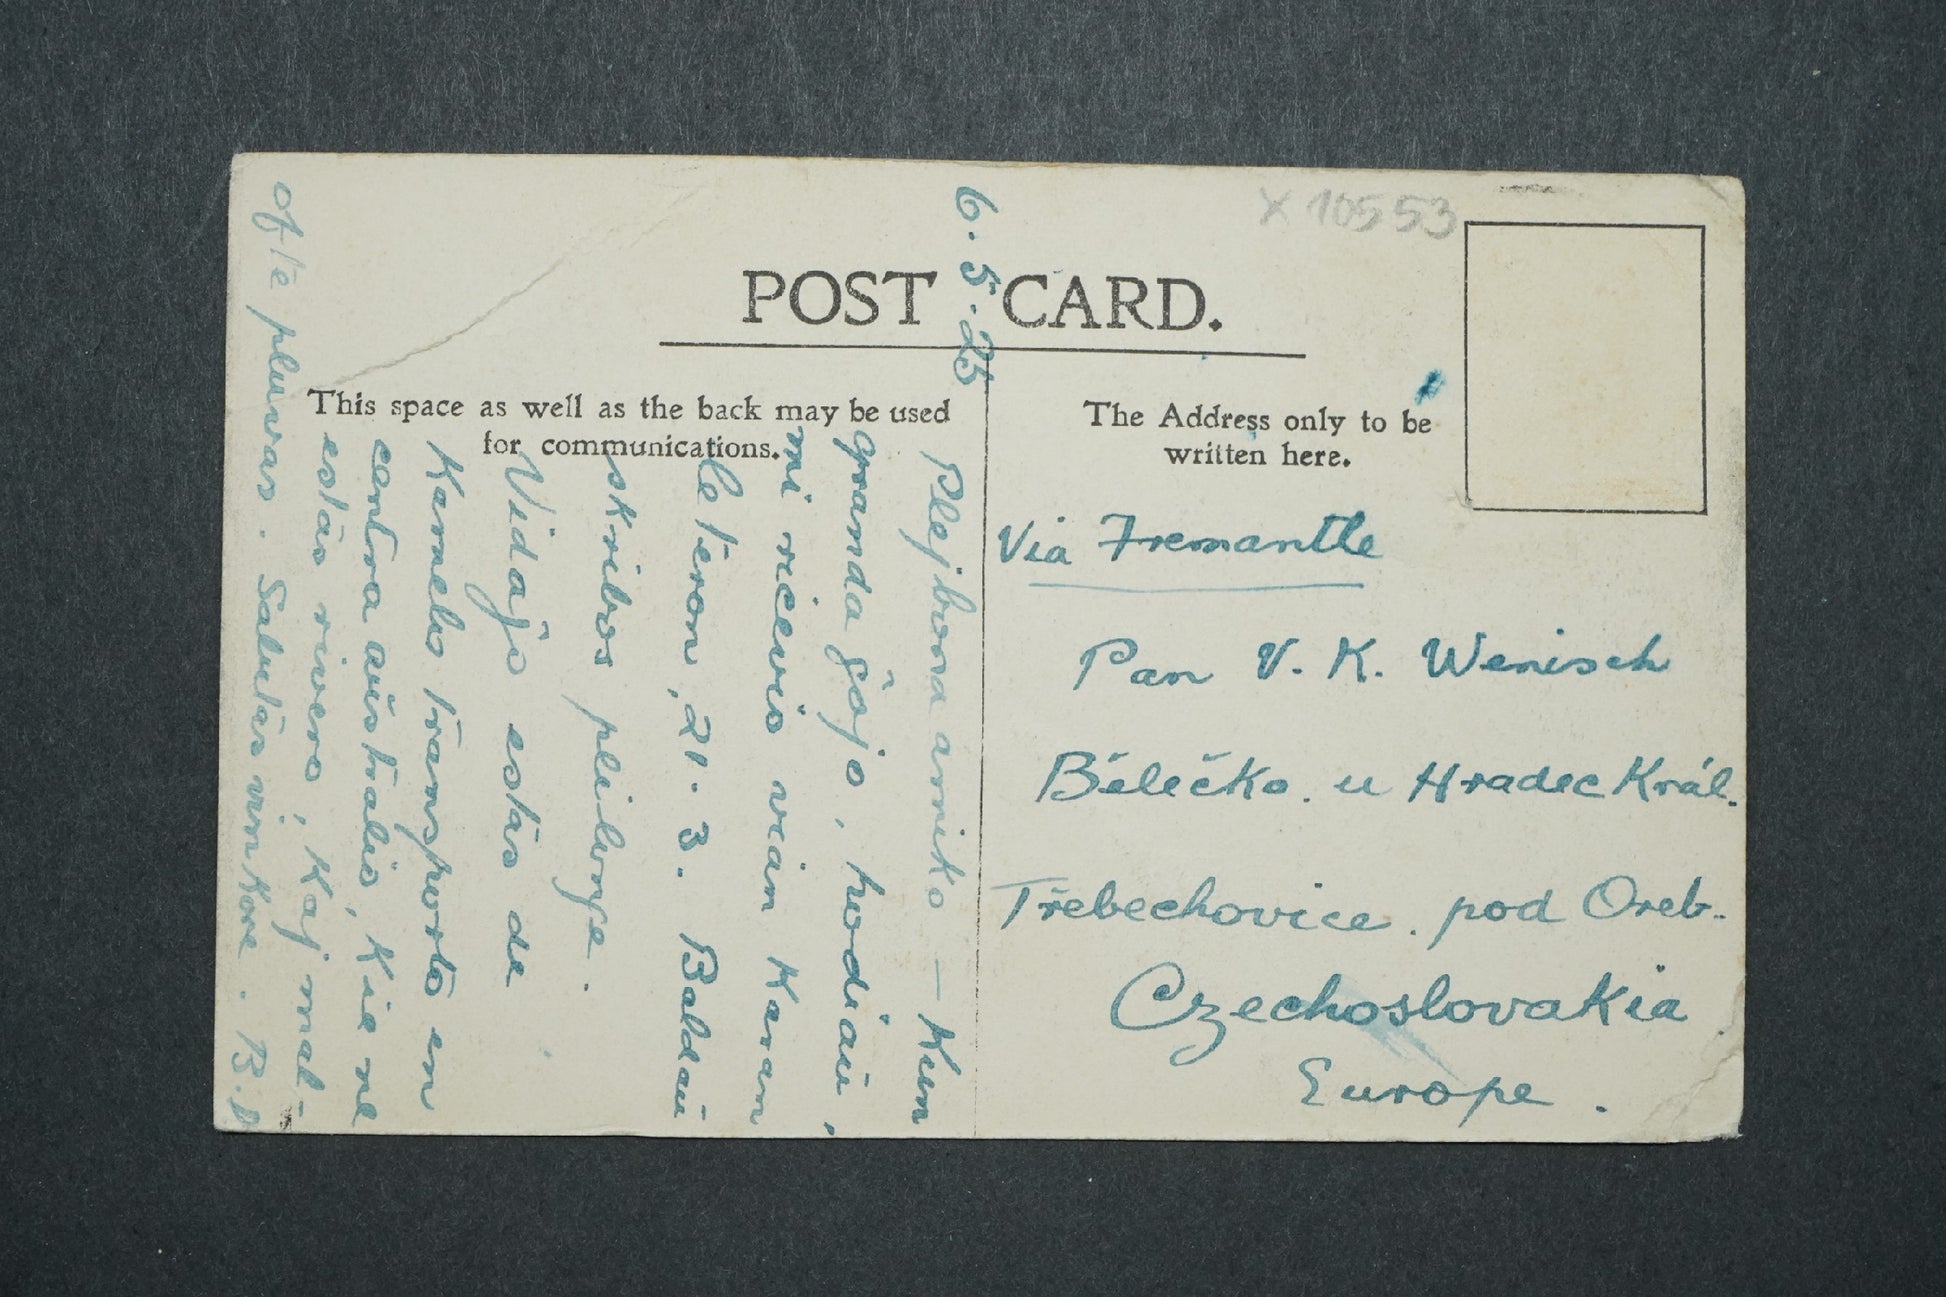 X 10553
POST CARD.
This space as well as the back may be used
for communications.
The Address only to be
written here.
6.5.25
Plejbona amiko — Kun
granda ĝojo, hodiaŭ,
mi ricevis vian karan
leteron, 21. 3. Baldaŭ
skribos plilonge.
Vidaĵo estas de
Kamelo transporto en
centra aŭstralio, kie ne
estas rivero, kaj mal-
ofte pluvas. Salutas vin kore. B.
Via Fremantle
Pan V. K. Wenisch
Bělečko. u Hradec Král.
Třebechovice. pod Oreb.
Czechoslovakia
Europe.